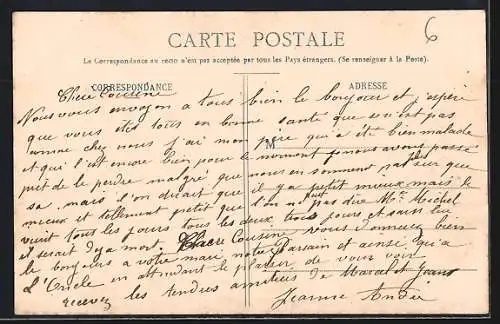 6
CARTE POSTALE
La Correspondance au recto n'est pas acceptée par tous les Pays étrangers. (Se renseigner à la Poste).
CORRESPONDANCE
ADRESSE
M
Chère Cousine
Nous vous envoyon a tous bien le bonjour et j'espère
que vous êtes tous en bonne santé que se n'est pas
comme chez nous j'ai mon père qui a été bien malade
et qui l'est encore bien pour le moment nous avons passé
prêt de le perdre malgré que nous en sommes pas plus sur que
sa mais l'on dirait que il y a petit mieux mais le
mieux et tellement petit que l'on ne peut pas dire Mr Michel
vient tous les jours tous les deux trois jours et sans lui
il serait deja mort. Chère Cousine vous donnerez bien
le bonjour a votre mari notre Parrain et ainsi qu'a
L'Oncle en attendant le plaisir de vous voir
recevez les tendres amitiées de Marcel et Yvans
Jeanne André